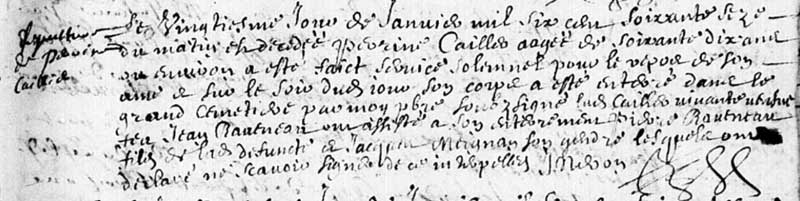 Sepulture
de Perrine
Cailler
Le Vingtiesme Jour de Janvier mil six cent soixante seze
du matin est decedée Perrine Cailler aagée de soixante dix ans
ou environ a esté faict service solemnel pour le repos de son
ame & sur le soir dudit jour son corps a esté enterré dans le
grand Cemetiere par moy pbre soubzsigné lad Cailler vivante vefve
feu Jean Raveneau ont assisté a son enterrement Pierre Raveneau
filz de lad defuncte & Jacques Meignan son gendre lesquels ont
declaré ne scavoir signer de ce interpellez